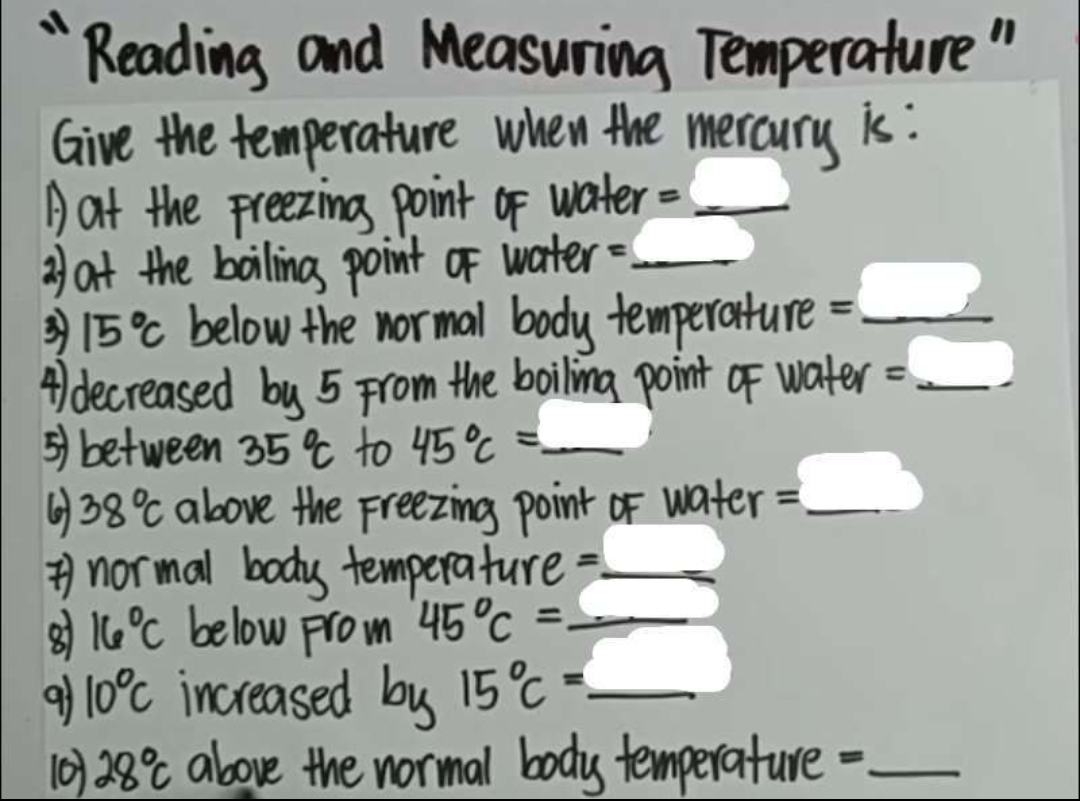 "Reading and Measuring Temperature"
Give the temperature when the mercury is:
1) at the freezing point of water = ___
2) at the boiling point of water = ___
3) 15°C below the normal body temperature = ___
4) decreased by 5 from the boiling point of water = ___
5) between 35°C to 45°C = ___
6) 38°C above the freezing point of water = ___
7) normal body temperature = ___
8) 16°C below from 45°C = ___
9) 10°C increased by 15°C = ___
10) 28°C above the normal body temperature = ___